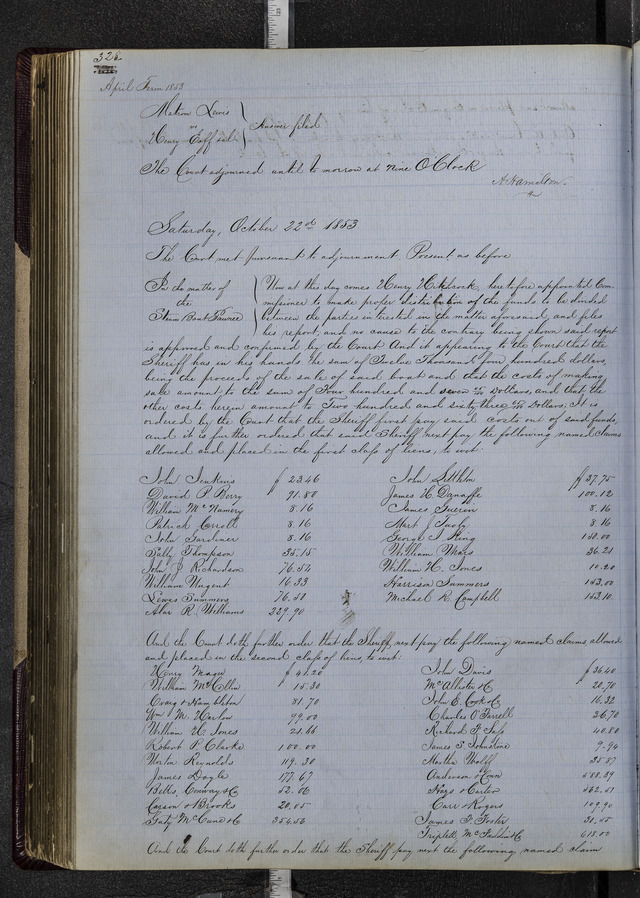 326
April Term 1853
Melvin Lewis
vs
Henry
Answer filed
The Court adjourned until to morrow at nine O'Clock
A Hamilton
Saturday, October 22nd 1853
The Court met pursuant to adjournment Present as before
In the matter of
the
Steam Boat
Now at this day comes Henry Hitchcock, heretofore appointed Com
missioner to make proper distribution of the funds to be divided
between the parties interested in the matter aforesaid, and files
his report, and no cause to the contrary being shown said report
is approved and confirmed by the Court And it appearing to the Court that the
Sheriff has in his hands the sum of Twelve Thousand four hundred dollars,
being the proceeds of the sale of said boat and that the costs of making
sale amount to the sum of Four hundred and seven Dollars, and that the
other costs herein amount to Two hundred and sixty three Dollars, It is
ordered by the Court that the Sheriff first pay said costs out of said funds
and it is further ordered that said Sheriff next pay the following named claims
allowed and placed in the first class of liens, to wit:
John Jenkins $ 23.46
David P. Berry 91.80
William McNamery 8.16
Patrick Carroll 8.16
John Gardiner 8.16
Sally Thompson 35.15
John J Richardson 76.54
William Nugent 16.33
Lewis Summers 76.50
R Williams 229.90
John $ 37.75
James H. 100.12
James Gueron 8.16
8.16
George I King 150.00
William Mears 36.21
William H. Jones 10.20
Harrison Summers 153.00
Michael R Campbell 153.10
And the Court doth further order that the Sheriff next pay the following named claims, allowed
and placed in the second class of liens, to wit:
Henry $ 41.20
William 15.30
Craig & Hambleton 81.70
Wm M. Harlow 79.00
William C Jones 21.66
Robert P Clarke 100.00
Reynolds 119.30
James Doyle 177.67
Conway & Co 52.06
Carson & Brooks 20.05
McCune & Co 354.56
John Davis $ 36.40
McAllister & Co 20.70
John E. Cook & Co 16.32
Charles O'Farrell 26.70
Richard F Sass 40.80
James S. Johnstone 9.94
Martha Wolff 35.57
Anderson & Conn
Hays & Carter
Carr Rogers 109.90
James F. Foster
Triplett, & Co 618.00
And the Court doth further order that the Sheriff pay next the following named claim